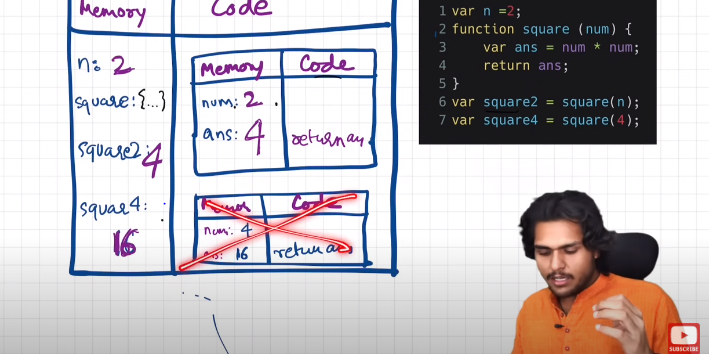 Memory Code
n: 2
square: {...}
square2: 4
squar4: :
16
Memory Code
num: 2 .
ans: 4
return an.
Code
num: 4
16 return
1 var n =2;
2 function square (num) {
3 var ans = num * num;
4 return ans;
5 }
6 var square2 = square(n);
7 var square4 = square(4);
SUBSCRIBE